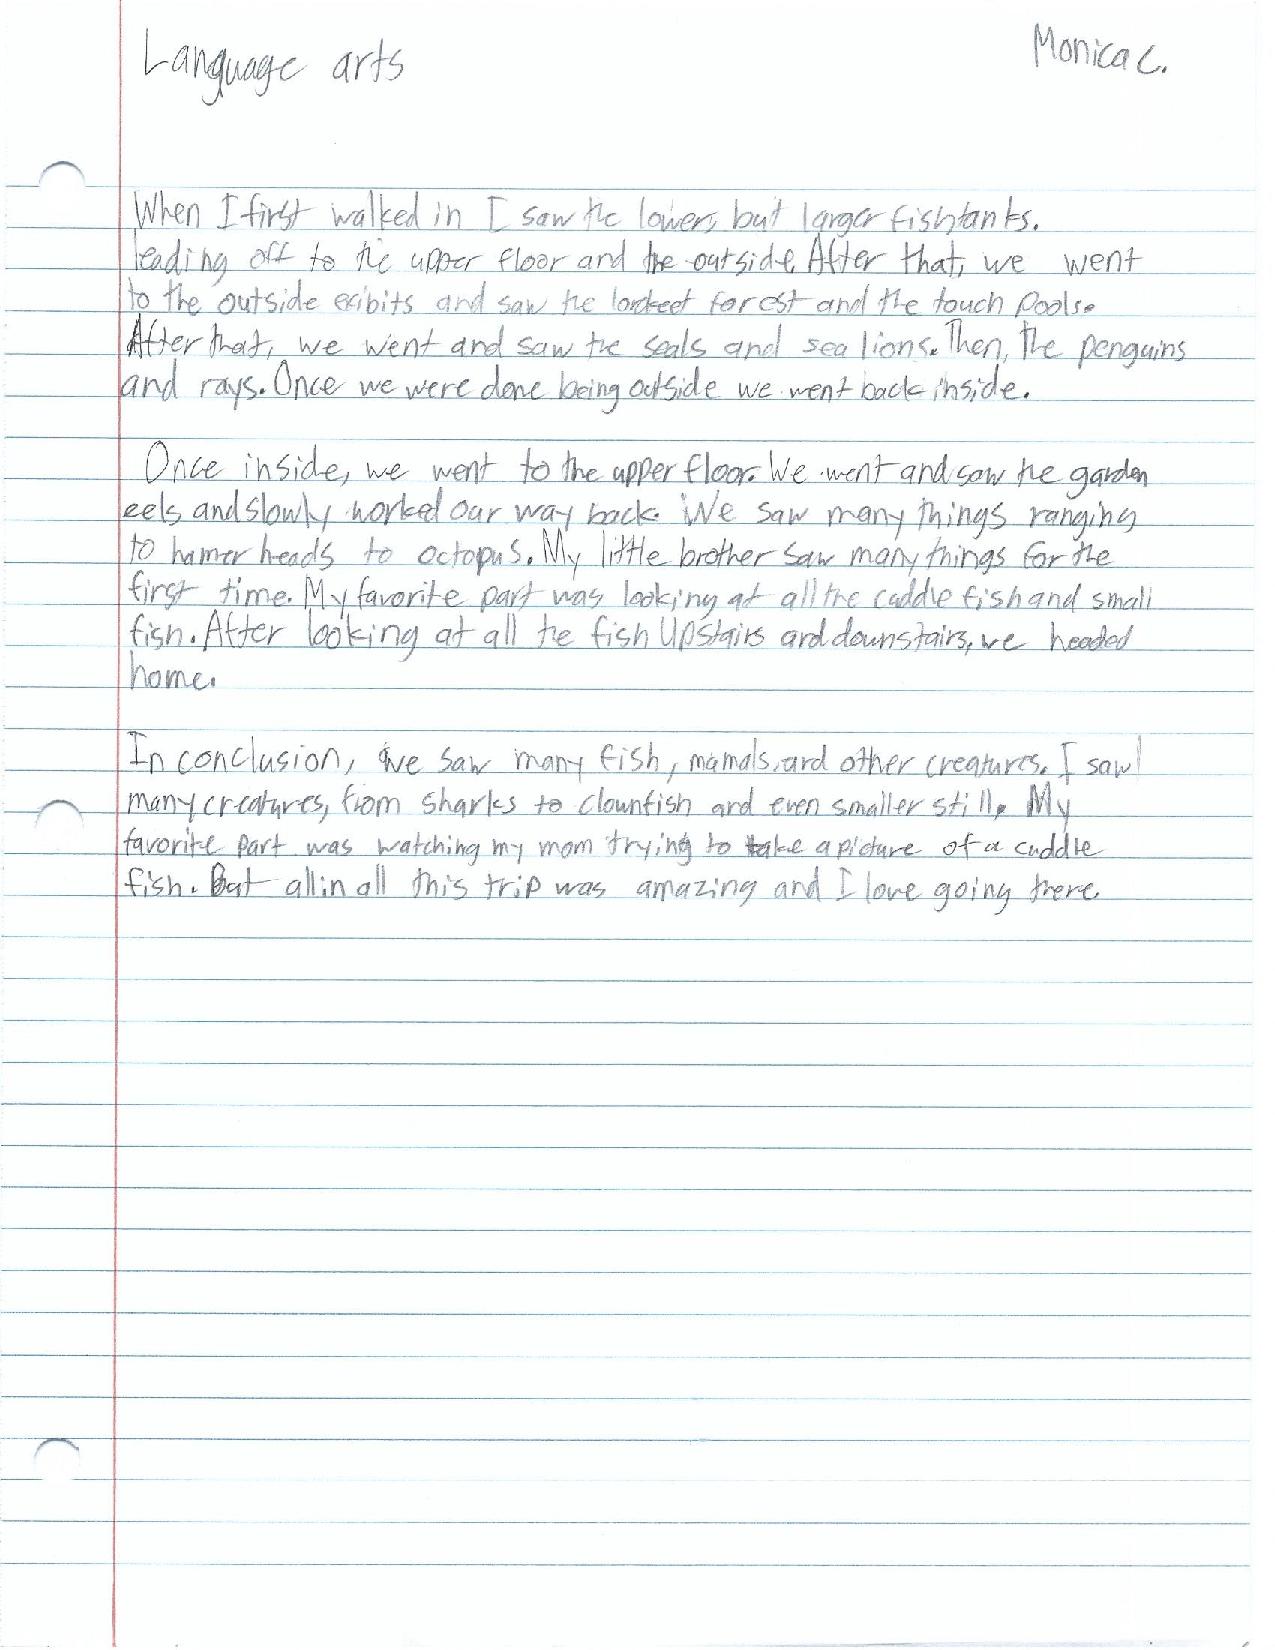 Language arts
Monica C.
When I first walked in I saw the lower, but larger fishtanks.
leading off to the upper floor and the outside. After that, we went
to the outside exibits and saw the forest and the touch pools.
After that, we went and saw the seals and sea lions. Then, The penguins
and rays. Once we were done being outside we went back inside.
Once inside, we went to the upper floor. We went and saw the garden
eels, and slowly worked our way back. We saw many things ranging
to hamer heads to octopus. My little brother saw many things for the
first time. My favorite part was looking at all the cuddle fish and small
fish. After looking at all the fish Upstairs and downstairs, we headed
home.
In conclusion, we saw many fish, mamals, and other creatures. I saw
many creatures, from sharks to clownfish and even smaller still. My
favorite part was watching my mom trying to take a picture of a cuddle
fish. But all in all this trip was amazing and I love going there.